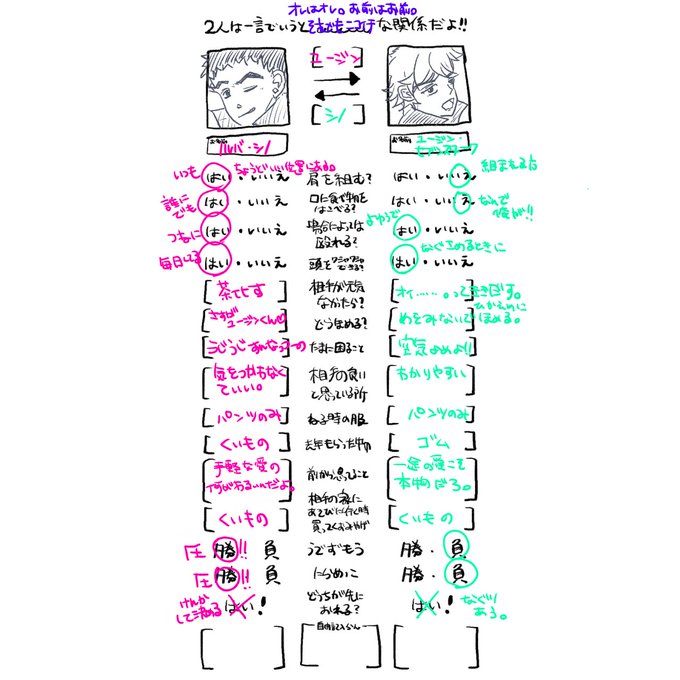 オレはオレ。お前はお前。
2人は一言でいうと な関係だよ!!
[ユージン]
[シノ]
お名前 ノルバ・シノ
お名前 ユージン・セブンスターク
いつも はい・いいえ ちょうどいい位置にある。 肩を組む? はい・いいえ 組まれる方
誰にでも はい・いいえ 口に食べ物をはこべる? はい・いいえ なんで俺が!!
つねに はい・いいえ 場合によっては殴れる? はい・いいえ よゆうで
毎日してる はい・いいえ 頭をワシャワシャできる? はい・いいえ なぐさめるときに
[茶化す] 相手が元気なかったら? [オイ……。って走きだす。]
[さすがユージンくん] どうほめる? [めをみないでほめる。]
[うじうじすんなっつーの] たまに困ること [空気よめよ!!]
[気をつかわなくていい。] 相手の良いと思っている所 [わかりやすい]
[パンツのみ] ねる時の服 [パンツのみ]
[くいもの] 去年もらった物 [ゴム]
[手軽な愛の何がわるいんだよ。] 前から思ってること [一途の愛こそ本物だろ。]
[くいもの] 相手の家にあそびに行く時買ってくおみやげ [くいもの]
圧 勝!! 負 うでずもう 勝・負
圧 勝!! 負 にらめっこ 勝・負
けんかして決める はい! どっちが先におれる? はい! なぐりあう。
自由記入らん